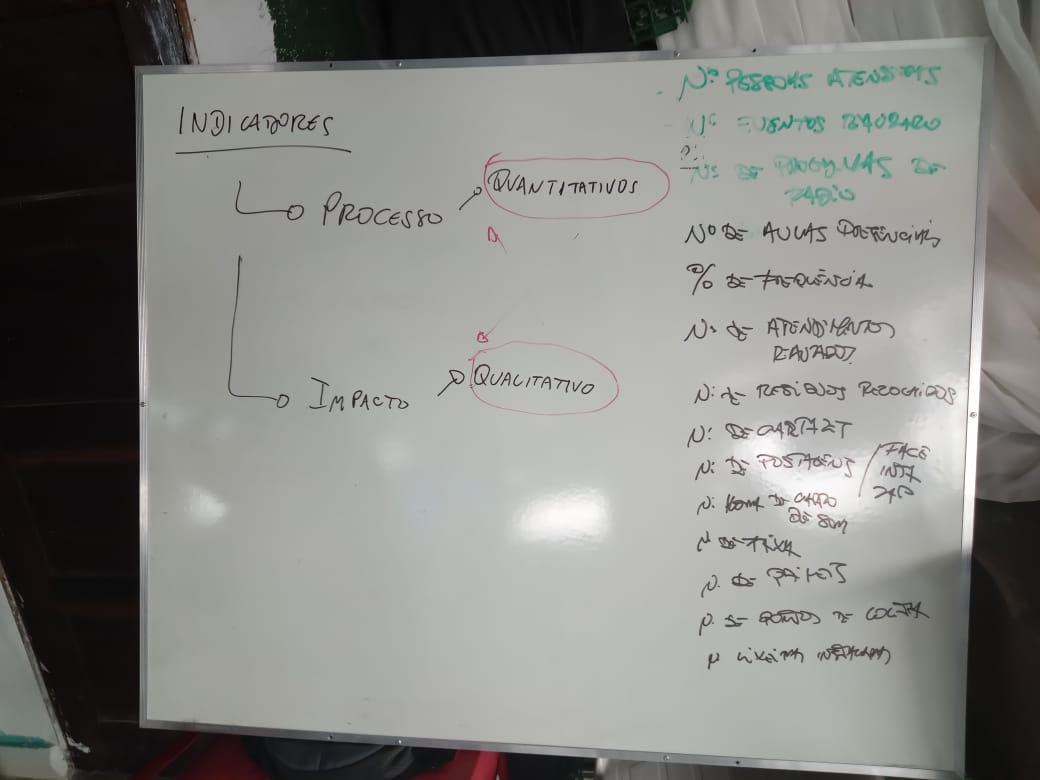 INDICADORES
PROCESSO
QUANTITATIVOS
IMPACTO
QUALITATIVO
Nº PESSOAS ATENDIDAS
Nº EVENTOS
Nº DE PROGRAMAS DE
RÁDIO
Nº DE AULAS POTENCIAIS
% DE FREQUÊNCIA
Nº DE ATENDIMENTOS
Nº DE RESIDUOS RECOLHIDOS
Nº DE CARTAZ
Nº DE POSTAGENS / FACE
INSTA
ZAP
Nº HORA DE CARRO
DE SOM
Nº DE FAIXA
Nº DE
Nº DE PONTOS DE COLETA
Nº LIXEIRA INSTALADAS